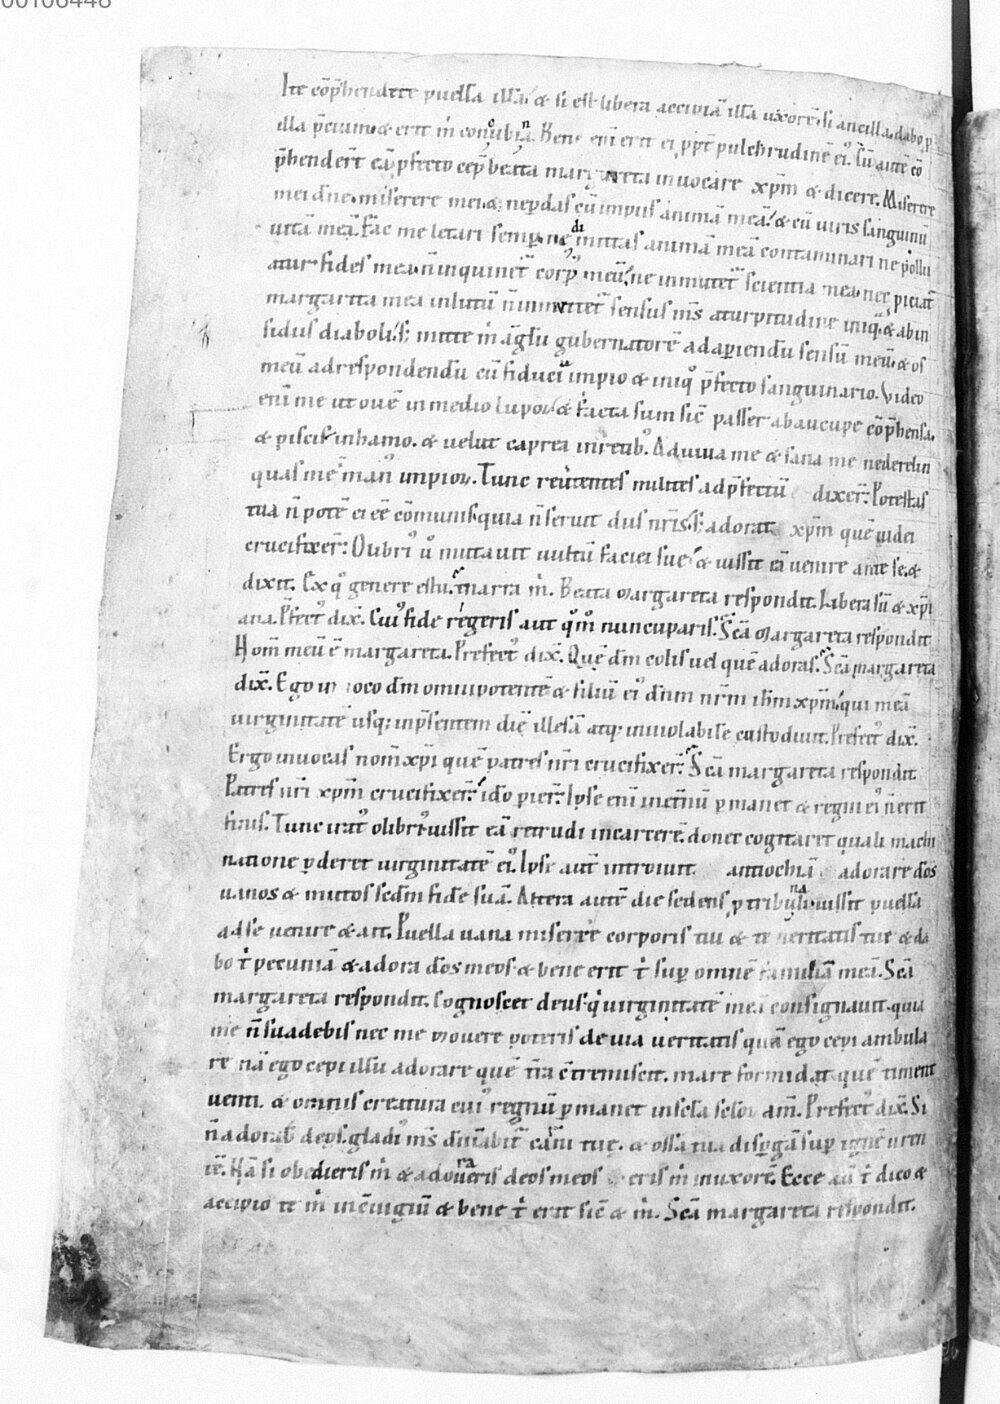 00106448
Ite cōp̄hendite puella illā. & si est libera accipiā illā uxorē. si ancilla. dabo p
illa p̄ciumq& erit m̄ conͦubinͣ. Bene enī erit ei ppt̄ pulchrudinē ei᾿. Cū autē cō
p̄hendert̄ eā p̄fecto cep̄ beata margareta inuocare xp̄m & dicere. Miserere
mei dn̄e. miserere mei. & ne ꝑdas cū impiis animā meā. & cū uiris sanguinū
uitā meā. Fac me letari semp. ne dimittas animā meā contaminari ne pollu
atur fides mea. n̄ inquinet᷑ corp᾿ meū. ne inmutet᷑ scientia mea. nec piciat᷑
margarita mea inlutū n̄ inmittet᷑ sensus m̄s aturpitudine iniq & abin
sidiis diaboli. s; mitte m̄ āglm̄ gubernatorē adaꝑiendū sensū meū. & os
meū adrespondendū cū fiducia impio & iniq᾿ p̄fecto sanguinario. Video
enī me ut ouē in medio lupoꝝ & facta sum sic passer abaucupe cōp̄hensa.
& piscis inhamo. & uelut caprea inretib᾿. Adiuua me & sana me ne derelin
quas me in man᾿ impioꝝ. Tunc reūtentes milites adp̄fectū dixer̄. Potestas
tua n̄ potē ei eē cōmunis. quia n̄ seruit diis nr̄is. s; adorat xp̄m quē iudei
crucifixer̄. Olibri᾿ ū mutauit uultū faciei sue. & iussit eā uenire ante se. &
dixit. Ex qͦ genere es tu. enarra m̄. Beata margareta respondit. Libera sū & xp̄i
ana. P̄fect᾿ dix̄. Cui᾿ fide regeris aut qͦ m̊ nuncuparis. Sc̄a margareta respondit
Nom̄ meū ē margareta. Prefect᾿ dix̄. Quē dm̄ colis uel quē adoras. Sc̄a margareta
dix̄. Ego inuoco dm̄ omnipotentē & filiū ei᾿ dn̄m nr̄m ihm̄ xp̄m. qui meā
uirginitatē usq; inp̄sentem diē illesā atq; inuiolabile custodiuit. Prefect᾿ dix̄.
Ergo inuocas nom̄ xp̄i quē patres nr̄i crucifixer̄. Sc̄a margareta respondit
Patres nr̄i xp̄m crucifixer̄. idō ꝑier̄. Ipse enī inetn̄ū ꝑmanet & regni ei᾿ n̄ erit
finis. Tunc irat᾿ olibri᾿ iussit eā retrudi incarcerē. donec cogitaret quali machi
natione ꝑderet uirginitatē ei᾿. Ipse aut̄ introiuit antiochiā adorare dōs
uanos & mutos sedm̄ fidē suā. Altera autē die sedens ꝓ tribunali iussit puellā
adse uenire & ait. Puella uana miserere corporis tui & te ueritatis tue & da
bo t᷑ pecuniā & adora dōs meos & bene erit t᷑ suꝑ omnē familiā meā. Sc̄a
margareta respondit. Cognoscet deus. q᷑ uirginitatē meā consignauit. quia
me n̄ suadebis nec me mouere poteris de uia ueritatis quā ego cepi ambula
re nā ego cepi illū adorare quē tr̄a c̄tremiscit. mare formidat quē timent
uenti. & omnis creatura cui᾿ regnū ꝑmanet insc̄la sc̄loꝝ am̄. Prefect᾿ dix̄. Si
n̄ adorab̄ deos. gladi᾿ m̄s dn̄iabit᷑ carni tuę. & ossa tua disꝑgā suꝑ ignē uren
tē. Nā si obedieris m̄ & adoraueris deos meos eris m̄ inuxorē. Ecce aū t᷑ dico &
accipio te m̄ in c̄iugiū & bene t᷑ erit sic & m̄. Sc̄a margareta respondit.